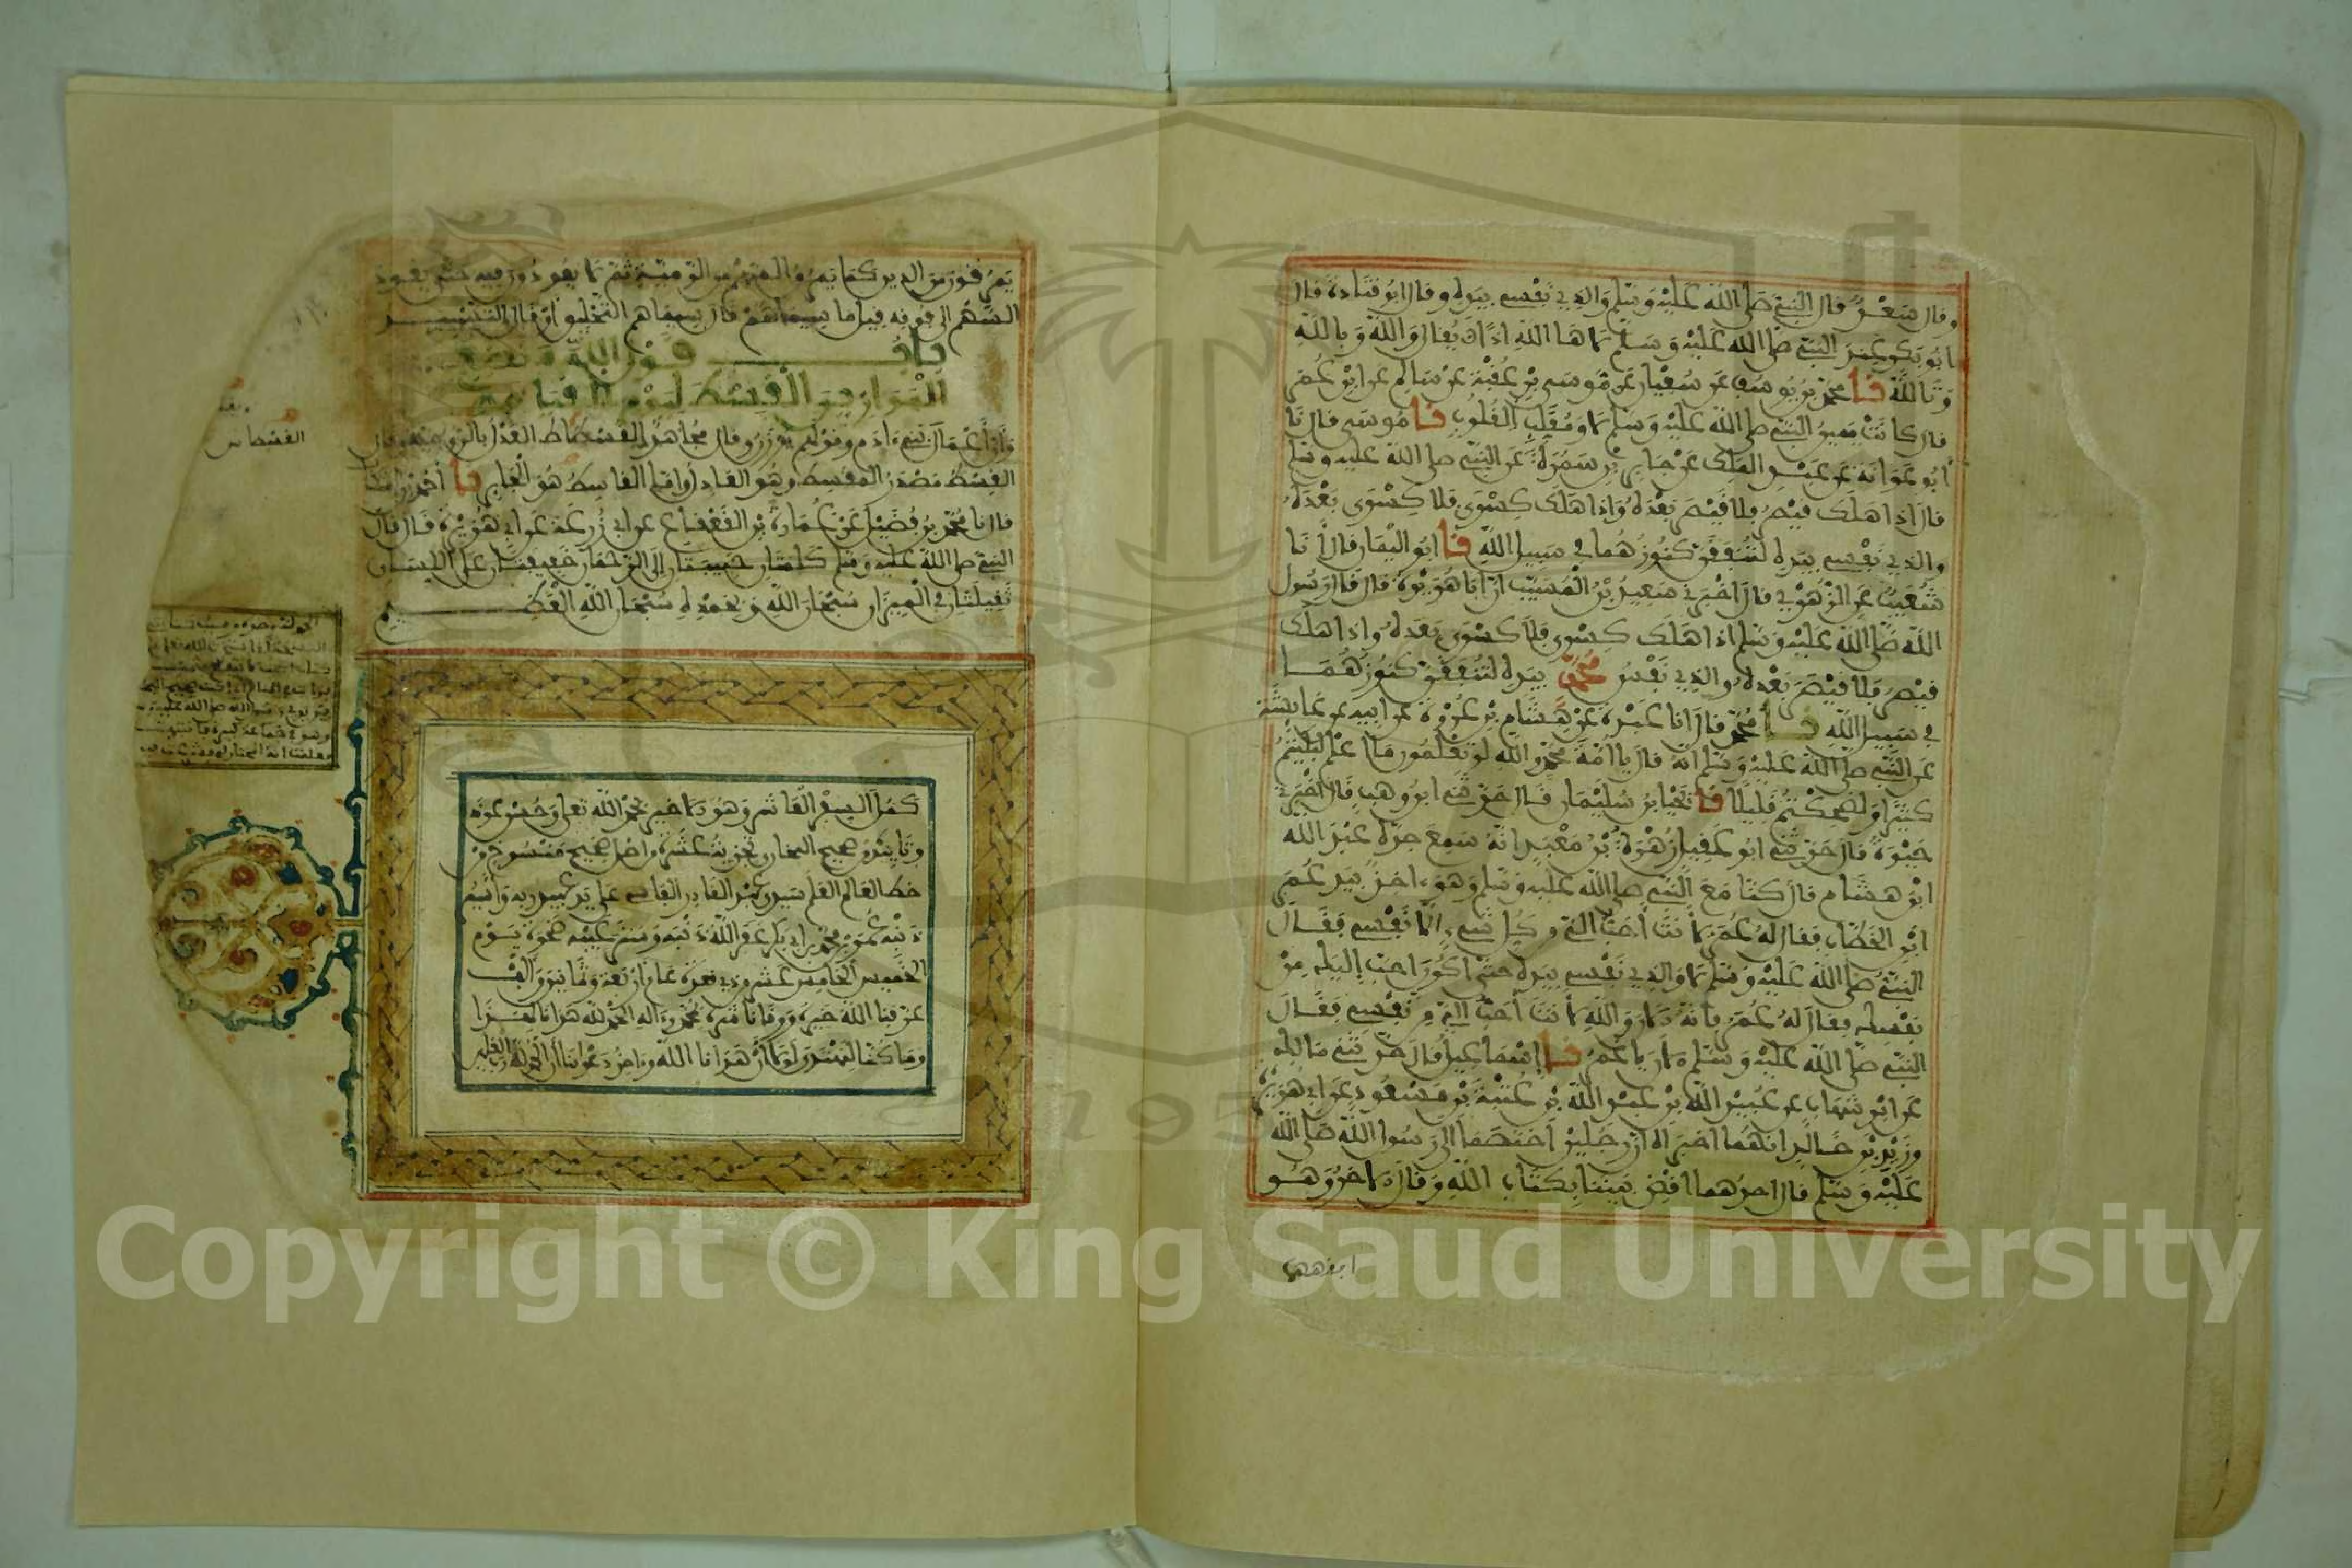 وقال سعد قال النبي صلى الله عليه وسلم والذي نفسي بيده وقال ابو قتادة قال
ابو بكر عند النبي صلى الله عليه وسلم لا ها الله اذا يقال والله وبالله
وتالله نا محمد بن يوسف عن سفيان عن موسى بن عقبة عن سالم عن ابن عمر
قال كانت يمين النبي صلى الله عليه وسلم لا ومقلب القلوب نا موسى قال نا
أبو عوانة عن عبد الملك عن جابر بن سمرة عن النبي صلى الله عليه وسلم
قال اذا هلك قيصر فلا قيصر بعده واذا هلك كسرى فلا كسرى بعده
والذي نفسي بيده لتنفقن كنوزهما في سبيل الله نا ابو اليمان قال أنا
شعيب عن الزهري قال اخبرني سعيد بن المسيب ان ابا هريرة قال قال رسول
الله صلى الله عليه وسلم اذا هلك كسرى فلا كسرى بعده واذا هلك
قيصر فلا قيصر بعده والذي نفس محمد بيده لتنفقن كنوزهما
في سبيل الله نا محمد قال انا عبدة عن هشام بن عروة عن ابيه عن عايشة
عن النبي صلى الله عليه وسلم انه قال يا امة محمد والله لو تعلمون ما اعلم لبكيتم
كثيرا ولضحكتم قليلا نا يحيى بن سليمان قال حدثني ابن وهب قال اخبرني
حيوة قال حدثني ابو عقيل زهرة بن معبد انه سمع جده عبد الله
ابن هشام قال كنا مع النبي صلى الله عليه وسلم وهو اخذ بيد عمر
ابن الخطاب فقال له عمر لأنت أحب الي من كل شيء الا نفسي فقال
النبي صلى الله عليه وسلم لا والذي نفسي بيده حتى اكون احب إليك من
نفسك فقال له عمر فانه الان والله لأنت أحب الي من نفسي فقال
النبي صلى الله عليه وسلم الان يا عمر نا اسماعيل قال حدثني مالك
عن ابن شهاب عن عبيد الله بن عبد الله بن عتبة بن مسعود عن ابي هريرة
وزيد بن خالد انهما اخبراه ان رجلين اختصما الى رسول الله صلى الله
عليه وسلم فقال احدهما اقض بيننا بكتاب الله وقال الاخر وهو
يمرقون من الدين كما يمرق السهم من الرمية ثم لا يعودون فيه حتى يعود
السهم الى فوقه قيل ما سيماهم قال سيماهم التحليق او قال التسبيد
باب قول الله ونضع
الموازين القسط ليوم القيامة
وأن أعمال بني ادم وقولهم يوزن وقال مجاهد القسطاط العدل بالرومية ويقال
القسط مصدر المقسط وهو العادل واما القاسط هو الجاير نا أحمد بن اشكاب
قال نا محمد بن فضيل عن عمارة بن القعقاع عن ابي زرعة عن ابي هريرة قال قال
النبي صلى الله عليه وسلم كلمتان حبيبتان إلى الرحمان خفيفتان على اللسان
ثقيلتان في الميزان سبحان الله وبحمده سبحان الله العظيم
القسطاس
كمل السفر العاشر وهو الاخير بحمد الله تعلى وحسن عونه
وتاييده صحيح البخاري تجزية عشرة من اصل صحيح منسوخ من
خط العالم العلم سيدي عبد القادر الفاسي على يد عبيد ربه وأسير
ذنبه محمد بن ابي بكر غفر الله ذنبه وستر عيبه ضحوة يوم
الخميس الخامس عشر ذي قعدة عام اربعة وثمانين وألف
عرفنا الله خيره ووقانا شره بمحمد وءاله الحمد لله الذي هدانا لهذا
وما كنا لنهتدي لولا أن هدانا الله وءاخر دعوانا أن الحمد لله رب العلمين